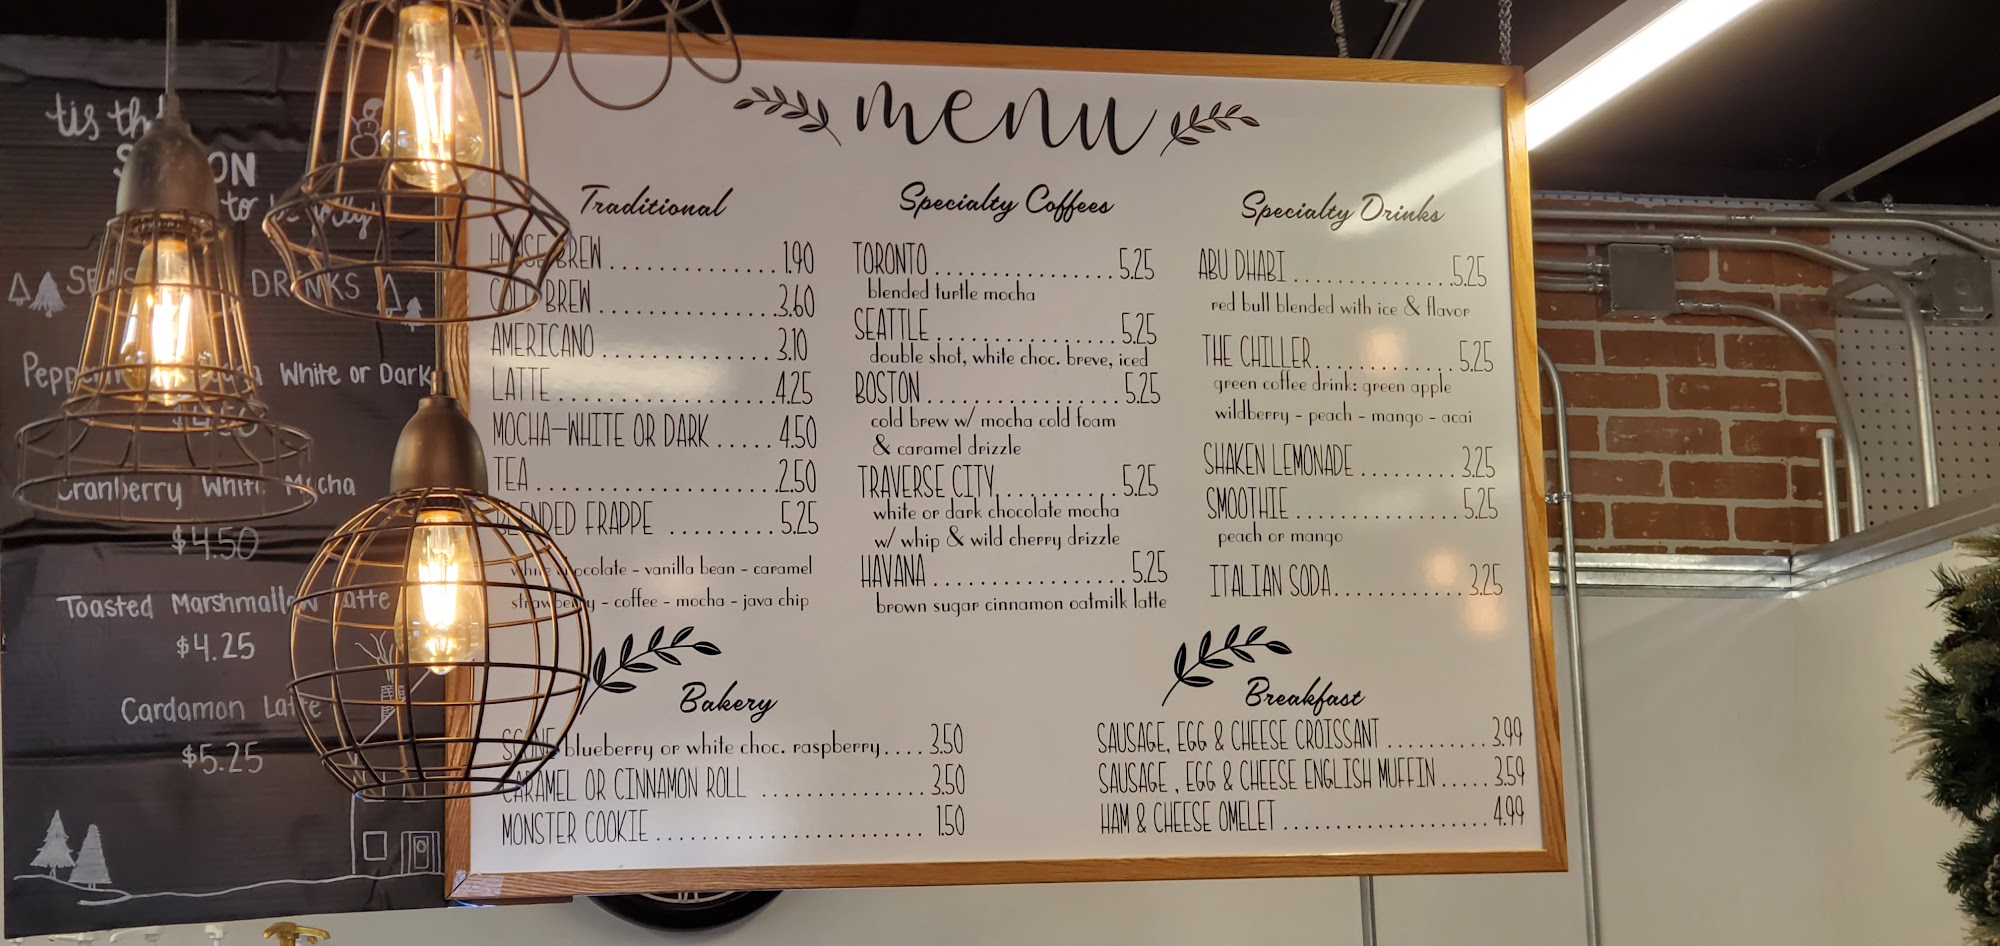 tis the
SEASON
to be jolly
SEASONAL DRINKS
Peppermint Mocha White or Dark
$4.50
Cranberry White Mocha
$4.50
Toasted Marshmallow Latte
$4.25
Cardamon Latte
$5.25
menu
Traditional
HOUSE BREW 1.90
COLD BREW 3.60
AMERICANO 3.10
LATTE 4.25
MOCHA-WHITE OR DARK 4.50
TEA 2.50
BLENDED FRAPPE 5.25
white chocolate - vanilla bean - caramel
strawberry - coffee - mocha - java chip
Specialty Coffees
TORONTO 5.25
blended turtle mocha
SEATTLE 5.25
double shot, white choc. breve, iced
BOSTON 5.25
cold brew w/ mocha cold foam
& caramel drizzle
TRAVERSE CITY 5.25
white or dark chocolate mocha
w/ whip & wild cherry drizzle
HAVANA 5.25
brown sugar cinnamon oatmilk latte
Specialty Drinks
ABU DHABI 5.25
red bull blended with ice & flavor
THE CHILLER 5.25
green coffee drink: green apple
wildberry - peach - mango - acai
SHAKEN LEMONADE 3.25
SMOOTHIE 5.25
peach or mango
ITALIAN SODA 3.25
Bakery
SCONE blueberry or white choc. raspberry 3.50
CARAMEL OR CINNAMON ROLL 3.50
MONSTER COOKIE 1.50
Breakfast
SAUSAGE, EGG & CHEESE CROISSANT 3.99
SAUSAGE, EGG & CHEESE ENGLISH MUFFIN 3.59
HAM & CHEESE OMELET 4.99